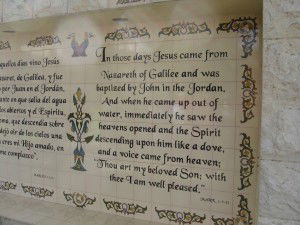 quellos días vino Jesús
zaret, de Galilea, y fue
por Juan en el Jordán.
ante en que salía del agua
os abiertos y el Espíritu
ma, que descendía sobre
dejó oír de los cielos una
eres mi Hijo amado, en
me complazco"
In those days Jesus came from
Nazareth of Galilee and was
baptized by John in the Jordan.
And when he came up out of
water, immediately he saw the
heavens opened and the Spirit
descending upon him like a dove,
and a voice came from heaven;
"Thou art my beloved Son; with
thee I am well pleased."